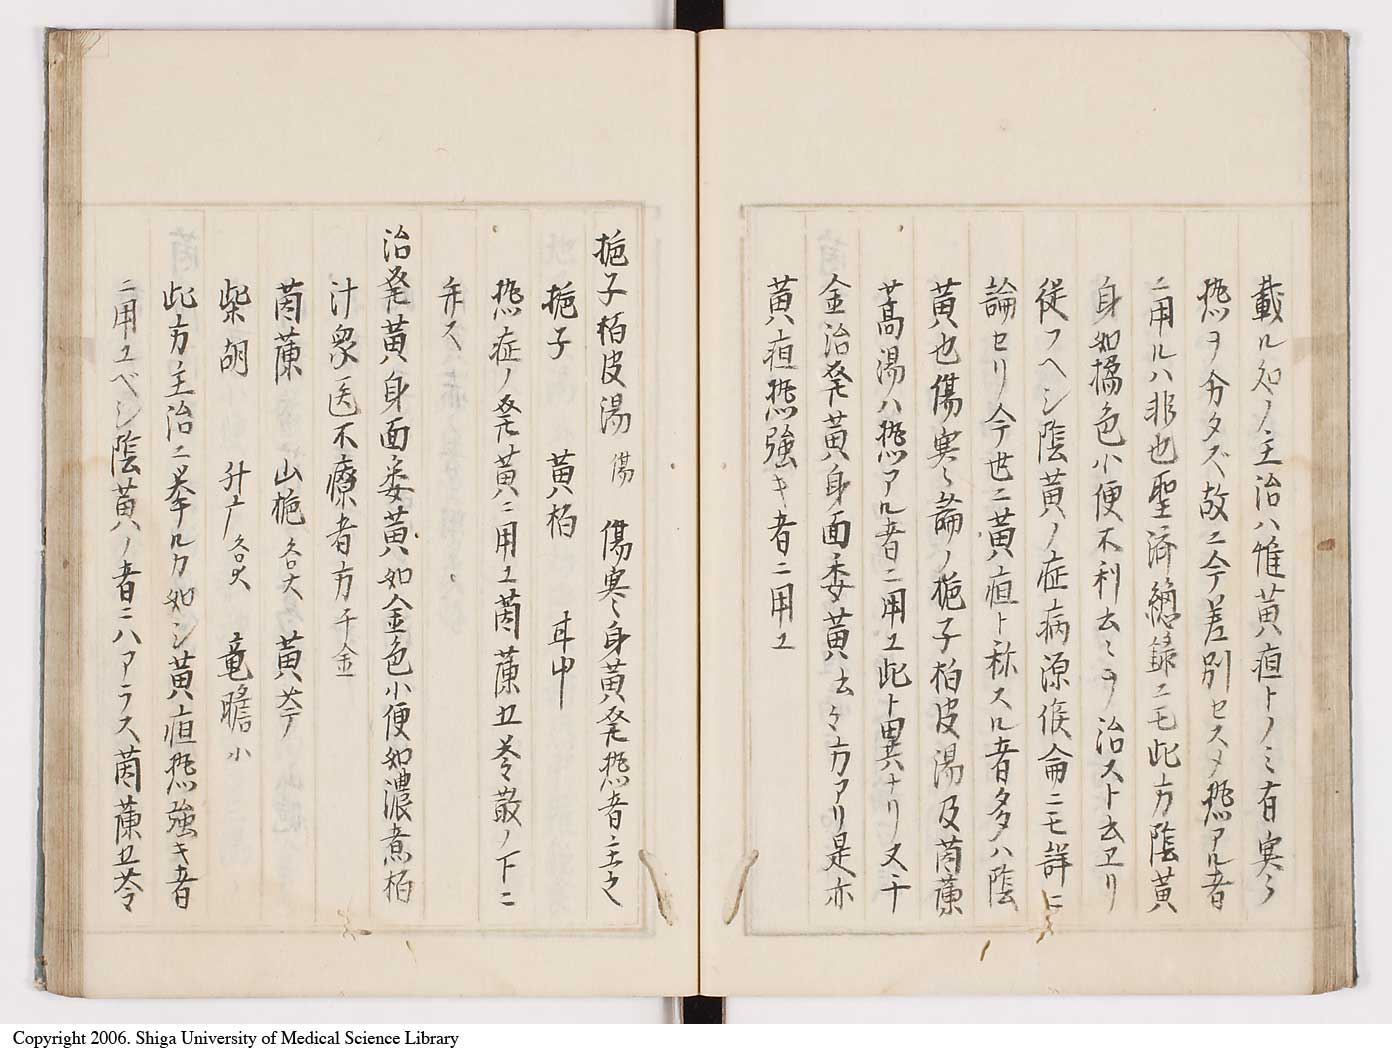 載ル処ノ主治ハ惟黄疸トノミ有寒々
熱ヲ分タズ故ニ今差別セスメ熱アル者
ニ用ルハ非也聖済總録ニモ此方陰黄
身如橘色小便不利云々ヲ治スト云エリ
従フヘシ陰黄ノ症病源候侖ニモ詳ニ
論セリ今世ニ黄疸ト称スル者多クハ陰
黄也傷寒々論ノ梔子柏皮湯及茵蔯
蒿湯ハ熱アル者ニ用ユ此ト異ナリ又千
金治発黄身面委黄云々方アリ是亦
黄疸熱強キ者ニ用ユ
梔子柏皮湯 傷 傷寒々身黄発熱者主之
梔子 黄柏 甘中
熱症ノ発黄ニ用ユ茵蔯五苓散ノ下ニ
弁ス
治発黄身面委黄如金色小便如濃煮柏
汁衆医不療者方 千金
茵蔯 山梔各大 黄芩
柴胡 升广各大 竜膽小
此方主治ニ挙ルカ如シ黄疸熱強キ者
ニ用ユベシ陰黄ノ者ニハアラス茵蔯五苓
Copyright 2006. Shiga University of Medical Science Library